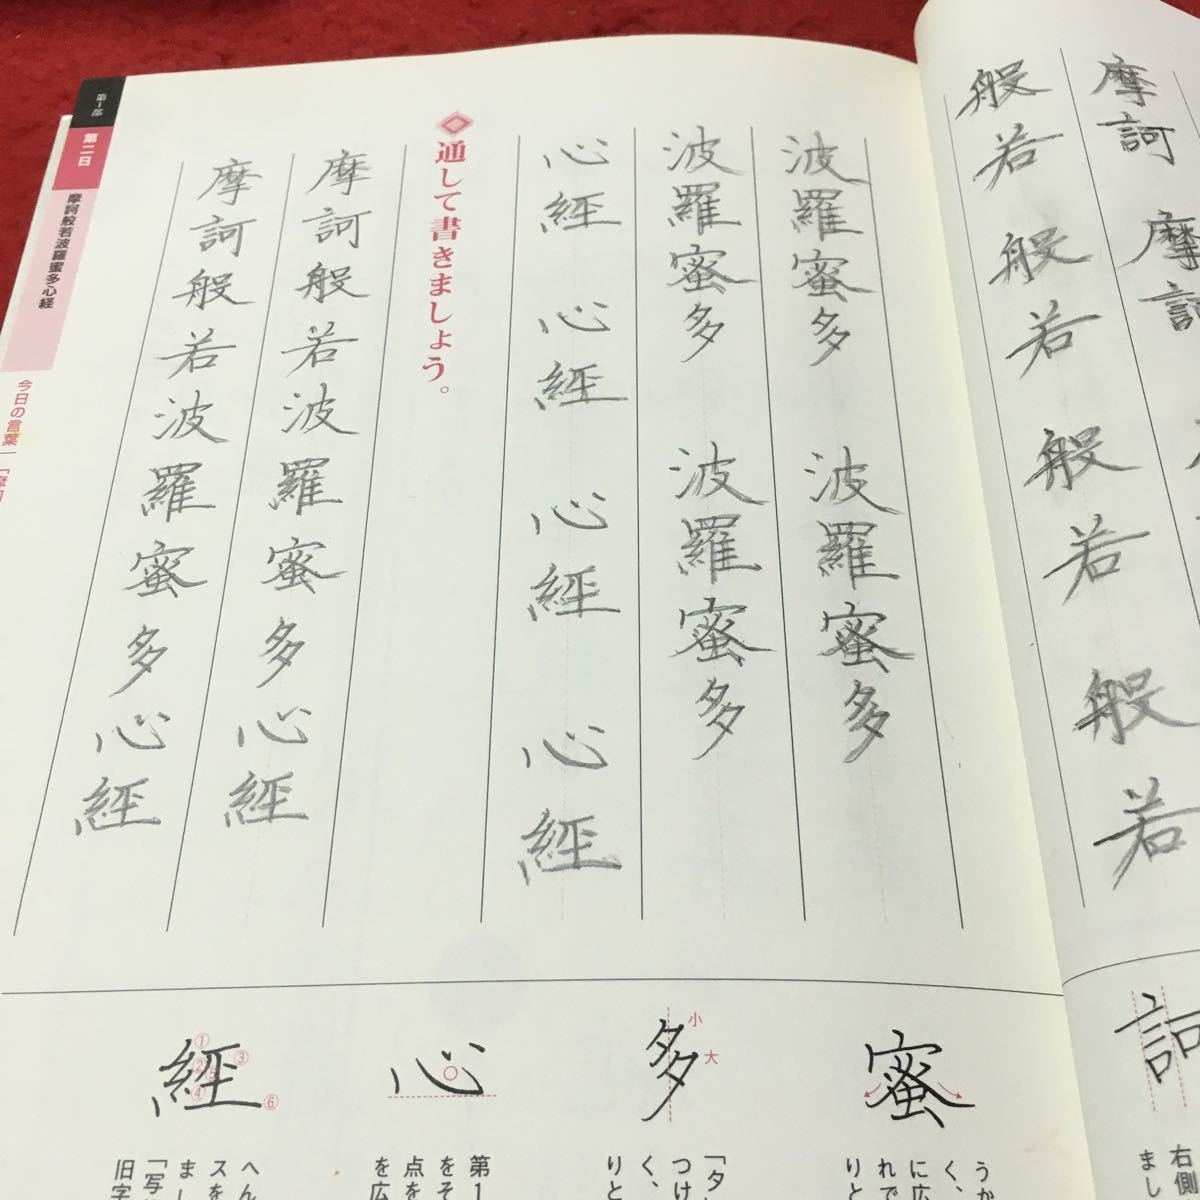 摩訶 摩訶
般若 般若 般若 般若
波羅蜜多 波羅蜜多
波羅蜜多 波羅蜜多
心経 心経 心経 心経
通して書きましょう。
摩訶般若波羅蜜多心経
摩訶般若波羅蜜多心経
第1部
第二日
摩訶般若波羅蜜多心経
今日の言葉
訶
右側
まし
蜜
うか
く、
に広
れで
りと
多
小
大
「タ
つけ
く、
りと
心
第1
をそ
点を
を広
経
①
②
③
④
⑤
⑥
へん
スを
まし
「写
旧字